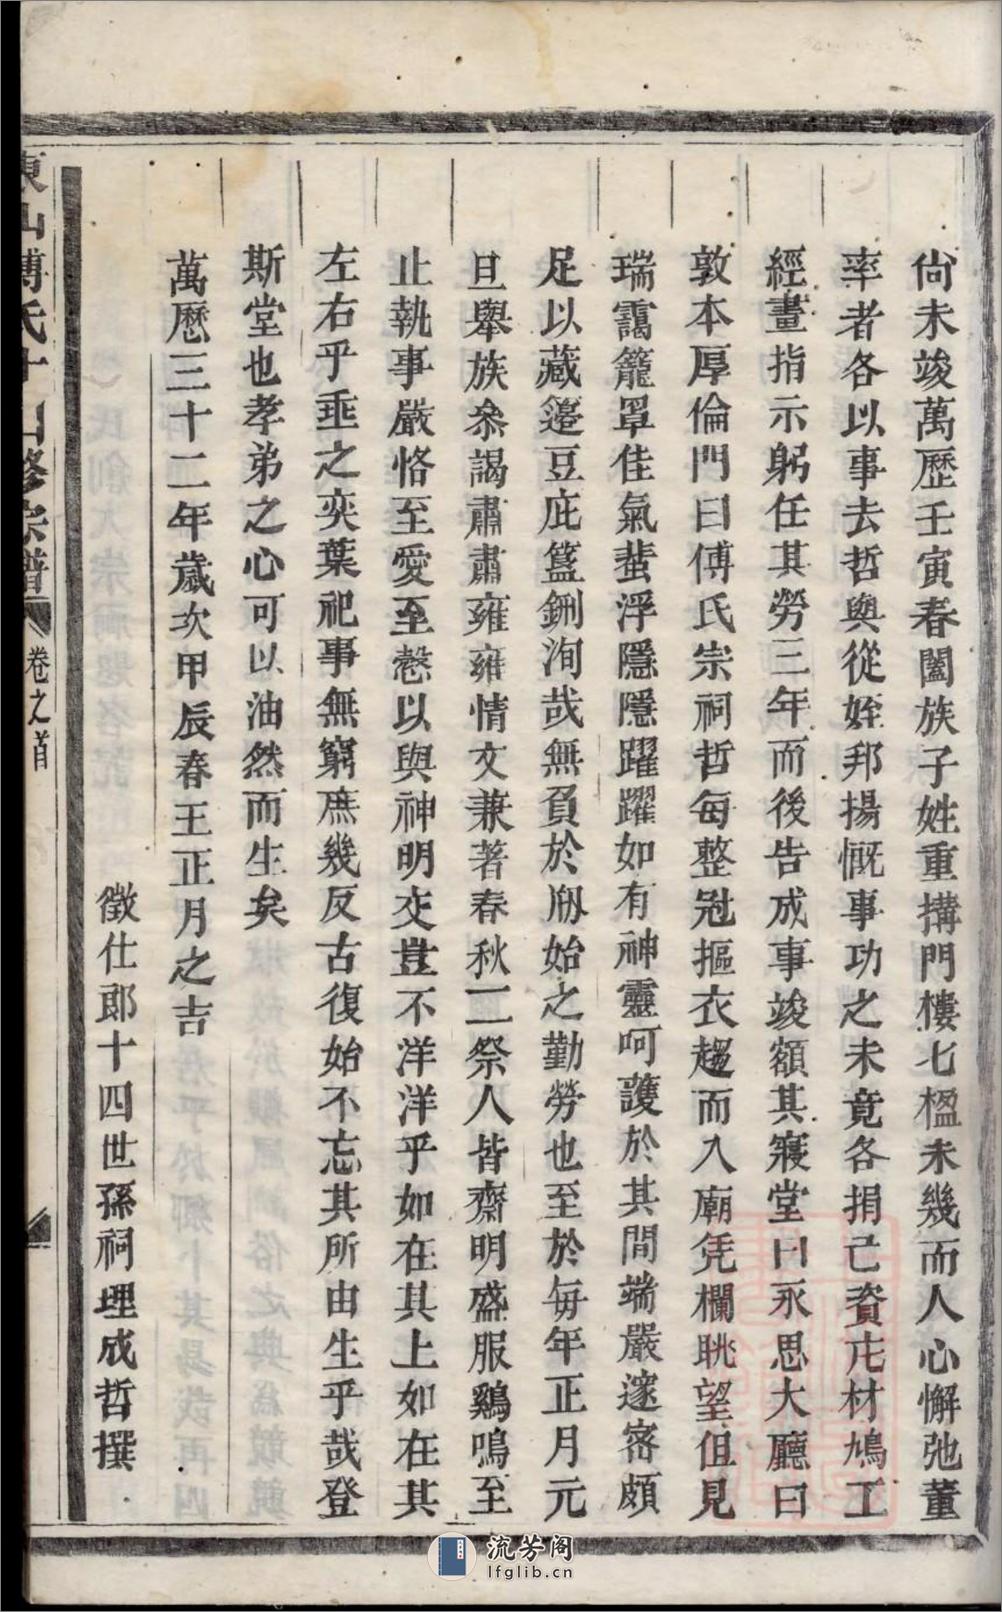 尙未竣萬歷壬寅春闔族子姓重搆門樓七楹未幾而人心懈弛董
率者各以事去哲與從姪邦揚慨事功之未竟各捐己資庀材鳩工
經畫指示躬任其勞三年而後告成事竣額其寢堂曰永思大廳曰
敦本厚倫門曰傅氏宗祠哲每整冠摳衣趨而入廟凭欄眺望但見
瑞靄籠罩佳氣蜚浮隱隱躍躍如有神靈呵護於其間端嚴邃密頗
足以藏籩豆庇簋鉶洵哉無負於刱始之勤勞也至於每年正月元
旦舉族叅謁肅肅雍雍情文兼著春秋二祭人皆齋明盛服鷄鳴至
止執事嚴恪至愛至慤以與神明交豈不洋洋乎如在其上如在其
左右乎垂之奕葉祀事無窮庶幾反古復始不忘其所由生乎哉登
斯堂也孝弟之心可以油然而生矣
萬曆三十二年歲次甲辰春王正月之吉
徵仕郎十四世孫祠理成哲撰
東山傅氏十一修宗譜 卷之首
流芳阁
lfglib.cn